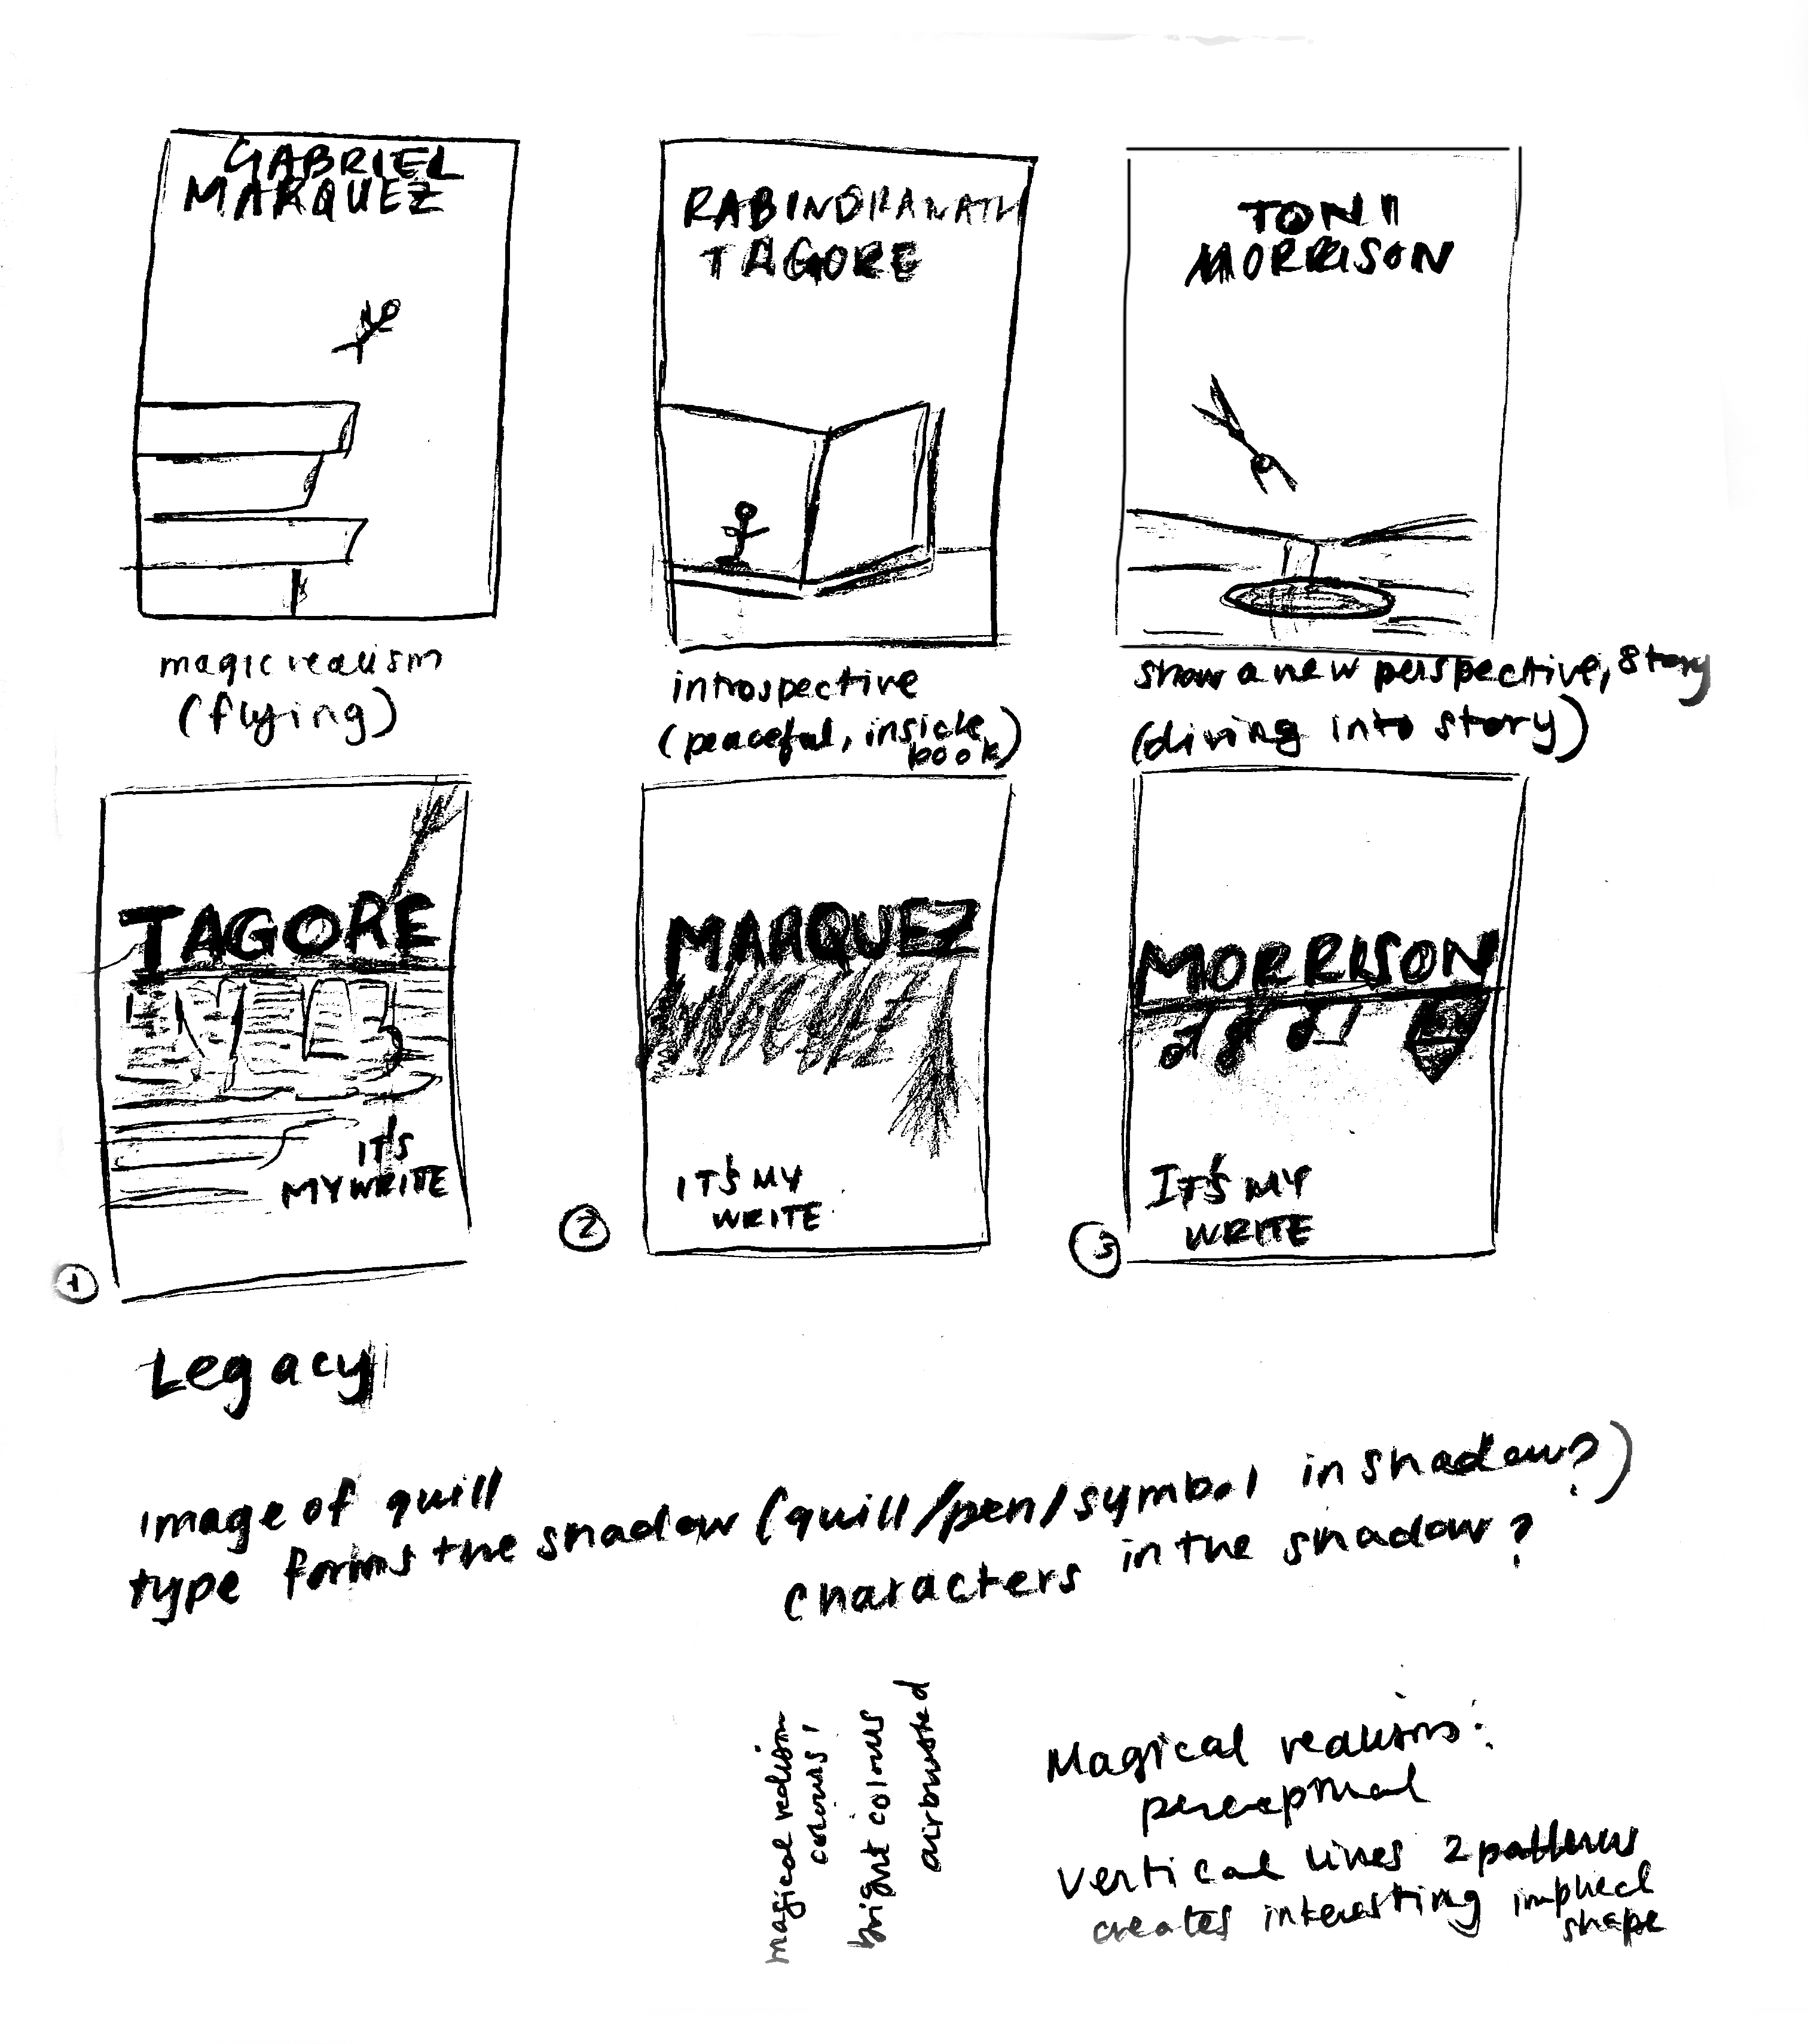 GABRIEL
MARQUEZ
RABINDRANATH
TAGORE
TONI
MORRISON
magic realism
(flying)
introspective
(peaceful, inside
book)
show a new perspective, story
(diving into story)
TAGORE
IT'S
MY WRITE
1
MARQUEZ
IT'S MY
WRITE
2
MORRISON
IT'S MY
WRITE
3
Legacy
image of quill
type forms the shadow (quill/pen/symbol in shadow?)
characters in the shadow?
magical realism
colours!
bright colours
airbrushed
Magical realism:
perceptual
vertical lines 2 patterns
creates interesting implied
shape